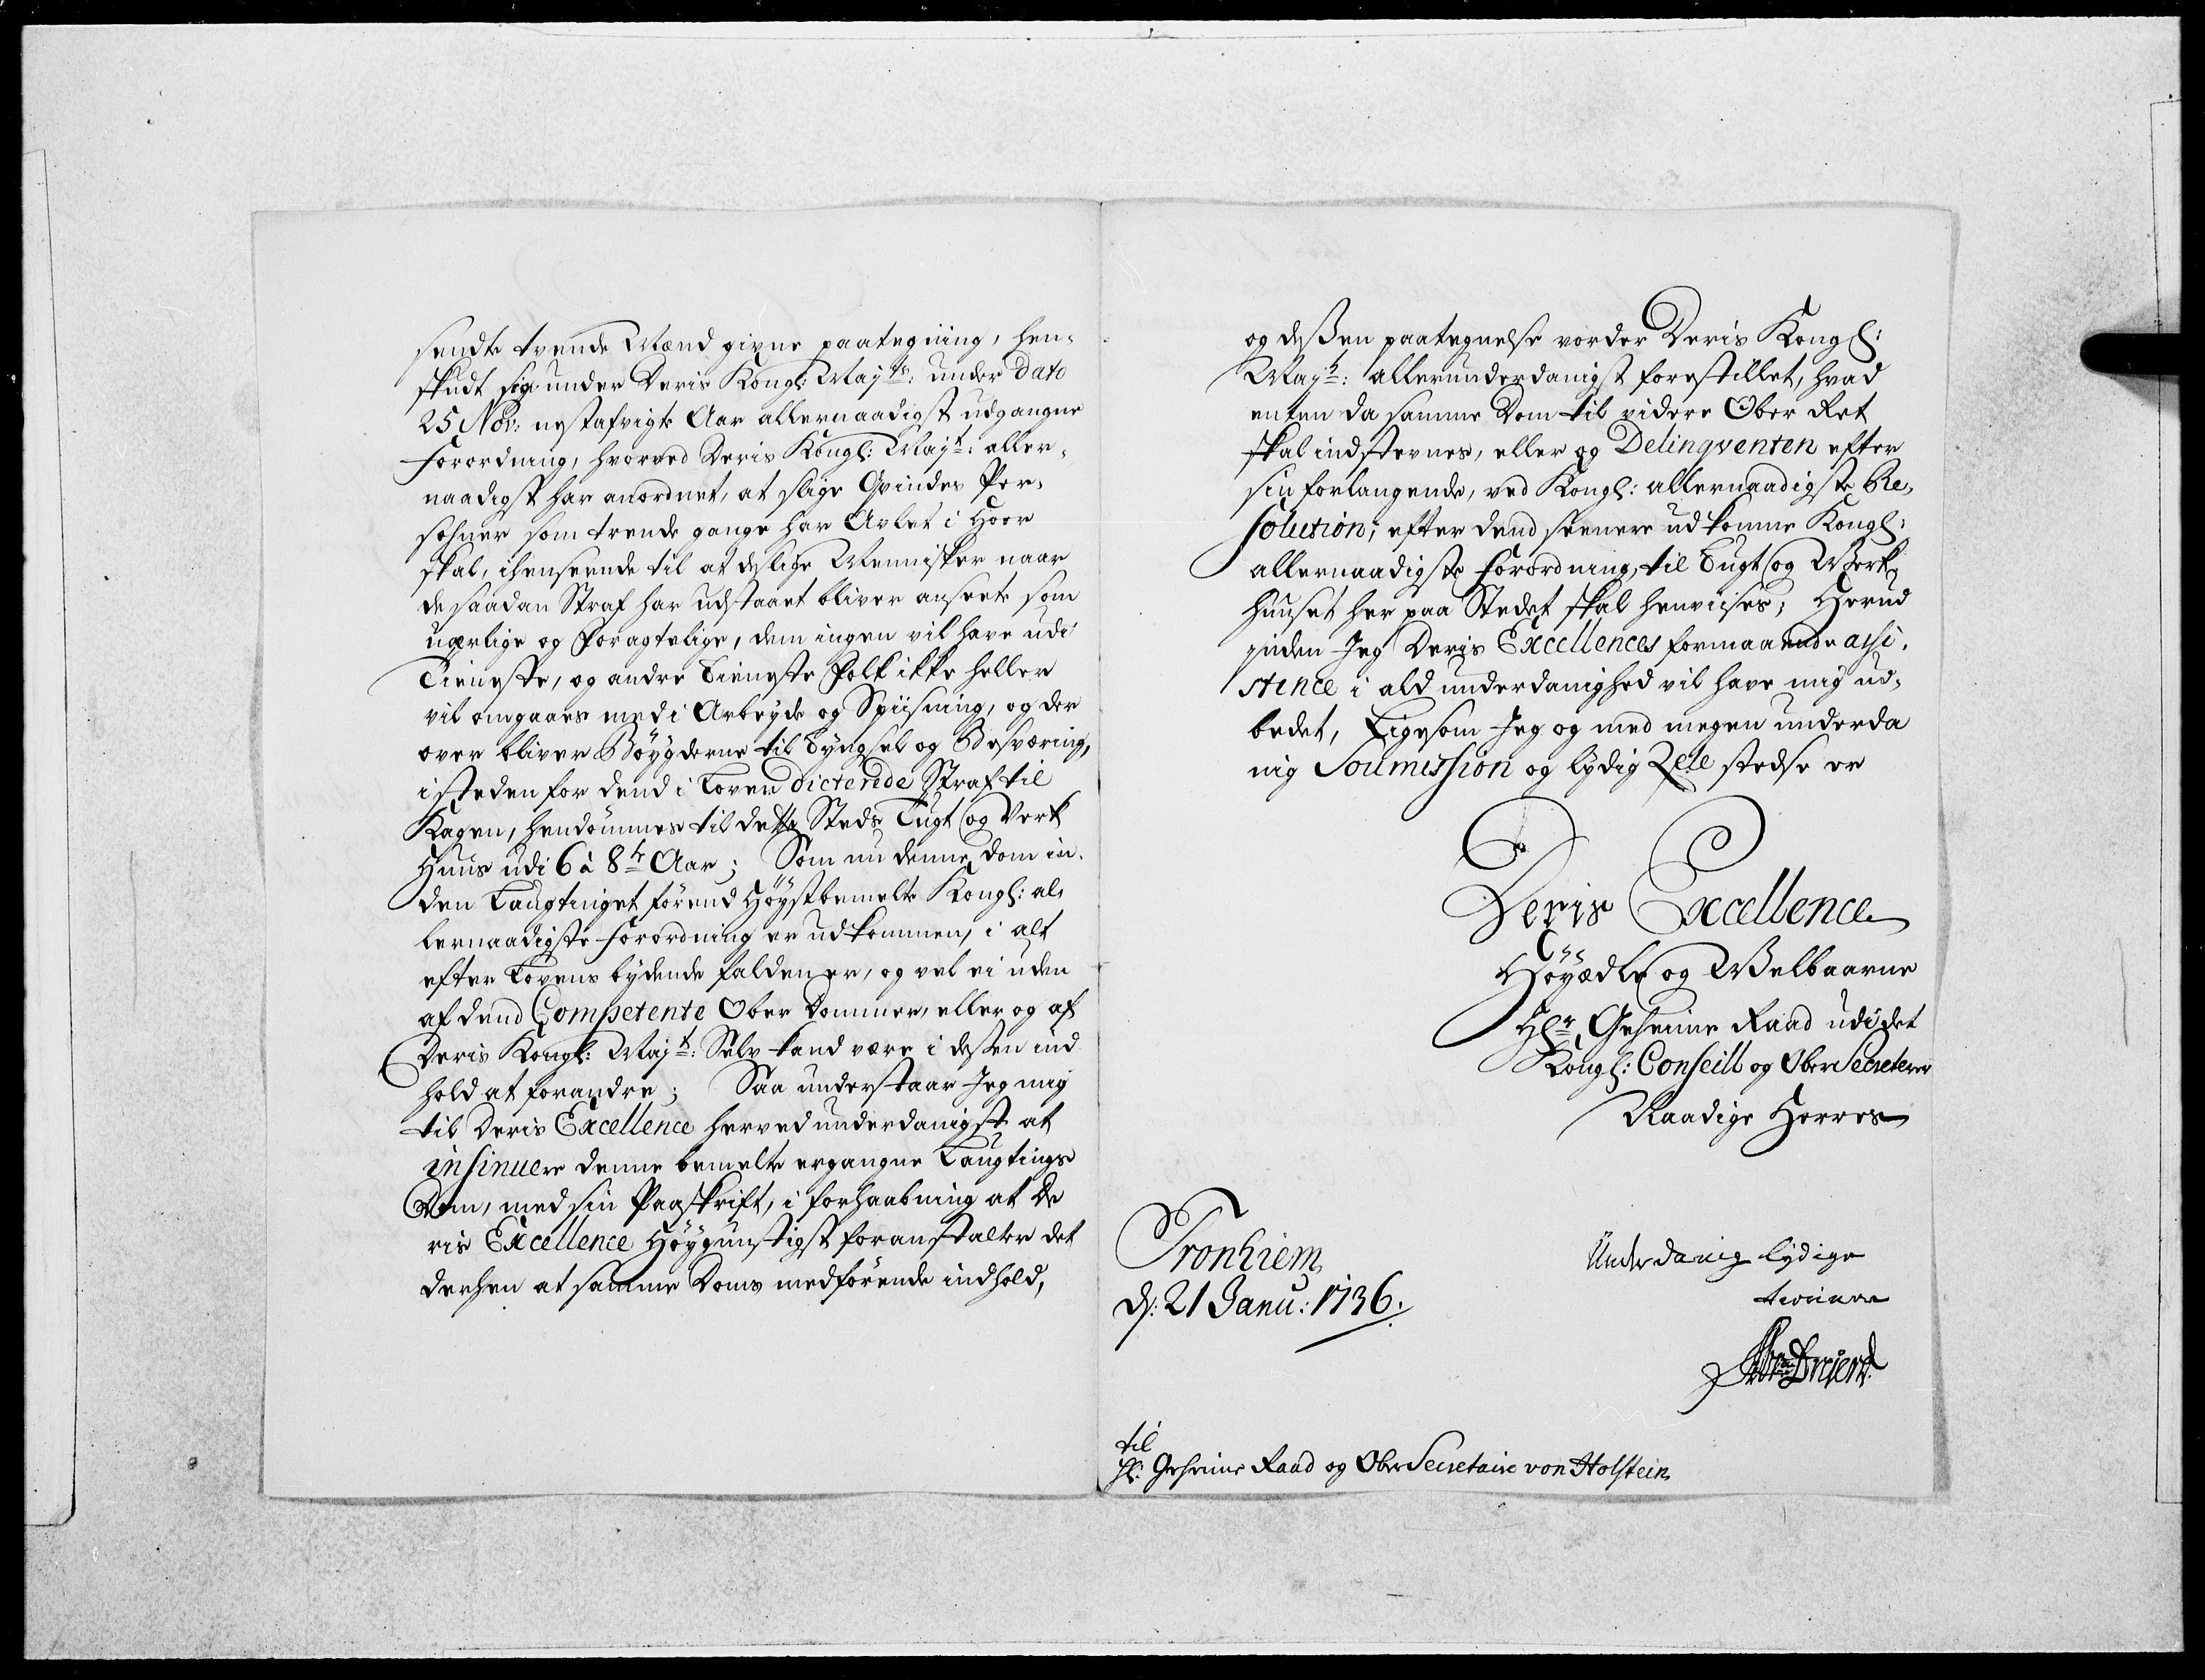 sendte tvende Mænd givne paategning, hen-
skudt sig under Deris Kongl: Mayts: under Dato
25 Nov: nestafvigte Aar allernaadigst udgangne
Forordning, hvorved Deris Kongl: Mayt: aller-
naadigst har anordnet, at slige Qvindes Per-
sohner som trende gange har Avlet i Hoor
skal, ihenseende til at deslige Mennisker naar
de saadan Straf har udstaaet bliver anseete som
uærlige og Foragtelige, dem ingen vil have udi
Tieneste, og andre Tieneste Folk ikke heller
vil omgaaes med i Arbeyde og Spiisning, og der
over bliver Böygderne til Tyngsel og Besværing,
isteden for dend i Loven dicterede Straf til
Kagen, hendömmes til dette Steds Tugt og Verk
Huus udi 6 à 8te Aar; Som nu denne dom in-
den Laugtinget förend Höystbemelte Kongl: al-
lernaadigste Forordning er udkommen, i alt
efter Lovens lydende falden er, og vel ei uden
af dend Competente Ober Dommer, eller og af
Deris Kongl: Mayt: Selv kand være i dessen ind
hold at forandre; Saa understaar Jeg mig
til Deris Excellence herved underdanigst at
insinuere denne bemelte ergangne Laugtings
Dom, med sin Paaskrift, i forhaabning at De
ris Excellence Höygunstigst foranstalter det
derhen at samme Doms medförende indhold,
og dessen paategnelse vorder Deris Kongl:
Mayt: allerunderdanigst forestillet, hvad
enten da samme Dom til videre Ober Ret
skal indstevnes, eller og Delinqventen efter
sin forlangende, ved Kongl: allernaadigste Re-
solution, efter dend seenere udkomne Kongl:
allernaadigste Forordning, til Tugt og Werk-
huuset her paa Stedet skal henviises; Herud
inden Jeg Deris Excellences formaaende assi-
stence i ald underdanighed vil have mig ud-
bedet, Ligesom Jeg og med megen underda
nig Soumission og lydig Zele stedse er
Deris Excellence
Höyædle og Welbaarne
Hr Geheime Raad udi det
Kongl: Conseill og Ober Secreterer
Naadige Herres
Tronhiem
d: 21 Janu: 1736.
Underdanig lydige
tienner
til
H: Geheime Raad og Ober Secretaire von Holstein